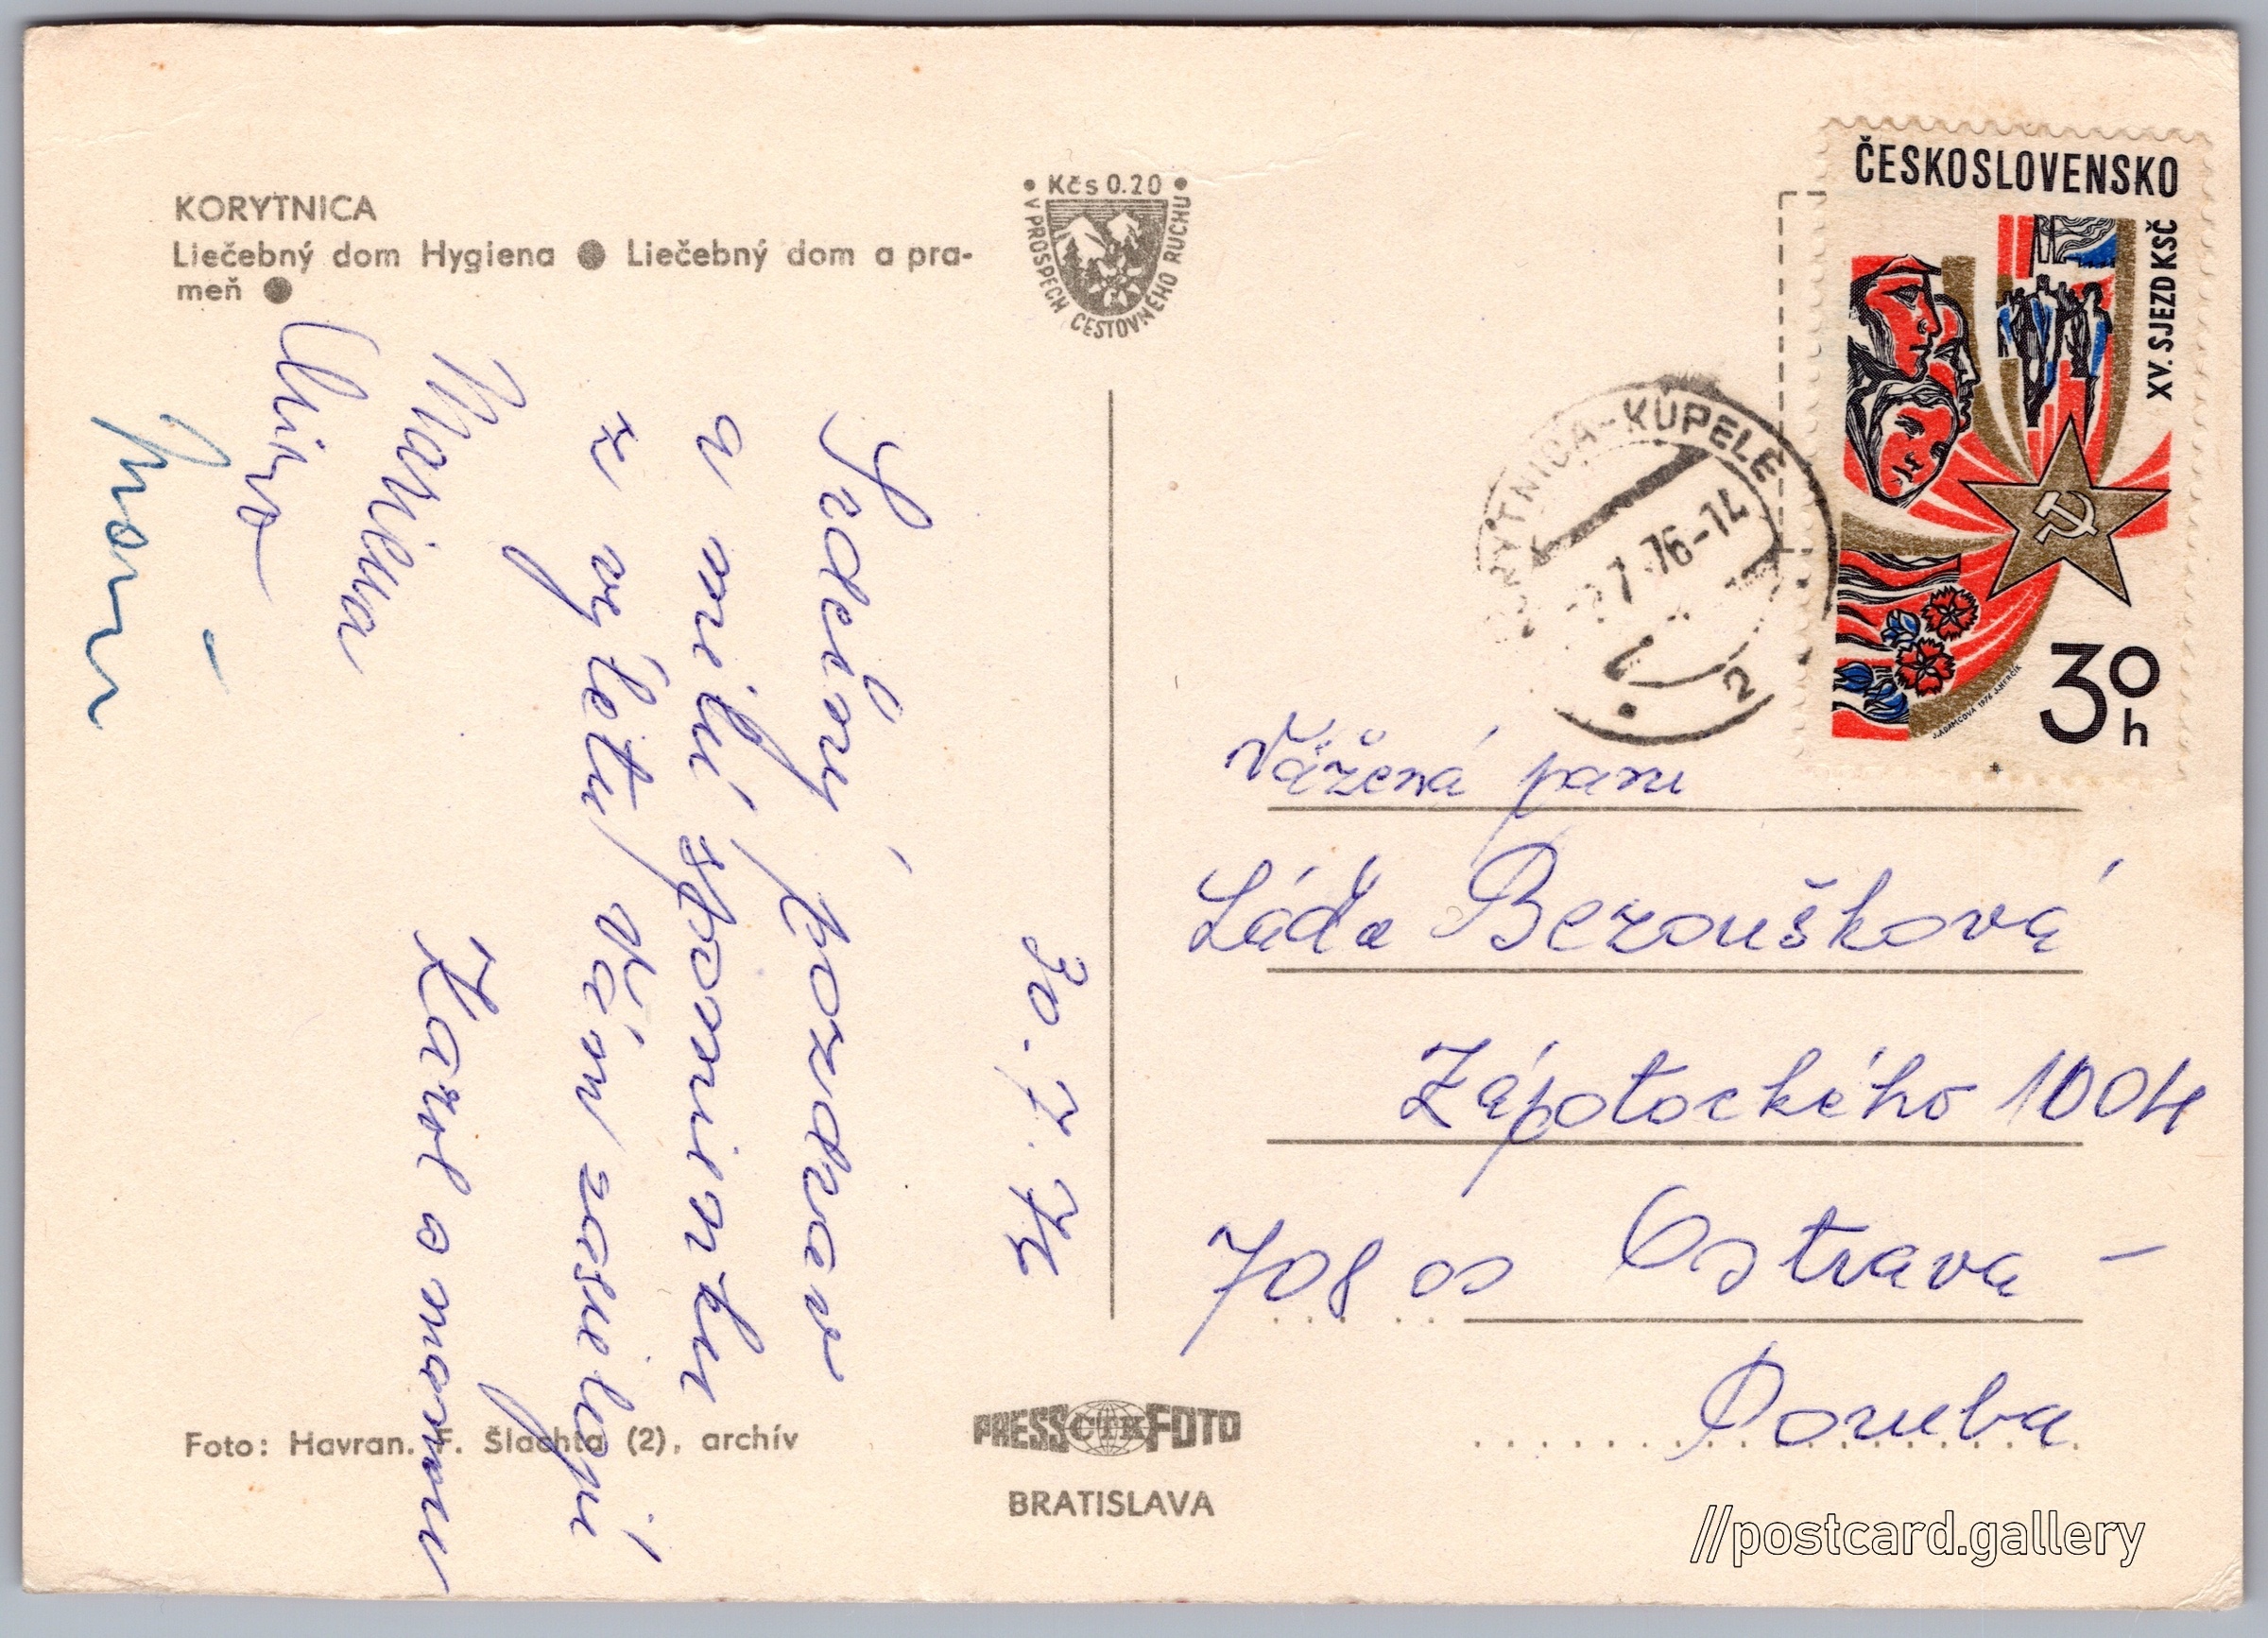 KORYTNICA
Liečebný dom Hygiena ● Liečebný dom a pra-
meň ●
• Kčs 0.20 •
V PROSPECH CESTOVNÉHO RUCHU
ČESKOSLOVENSKO
XV. SJEZD KSČ
30
h
J. ADAMCOVÁ 1976 J. HERČÍK
KORYTNICA-KÚPELE
7.76-14
2
30. 7. 76
Srdečný pozdrav
a milú spomienku
z výletu Vám zasielajú
Karol a mami
Marienka
Vážená pani
Láďa Bezoušková
Zápotockého 1004
708 00 Ostrava -
Poruba
Foto: Havran. F. Šlachta (2), archív
PRESS ČTK FOTO
BRATISLAVA
//postcard.gallery